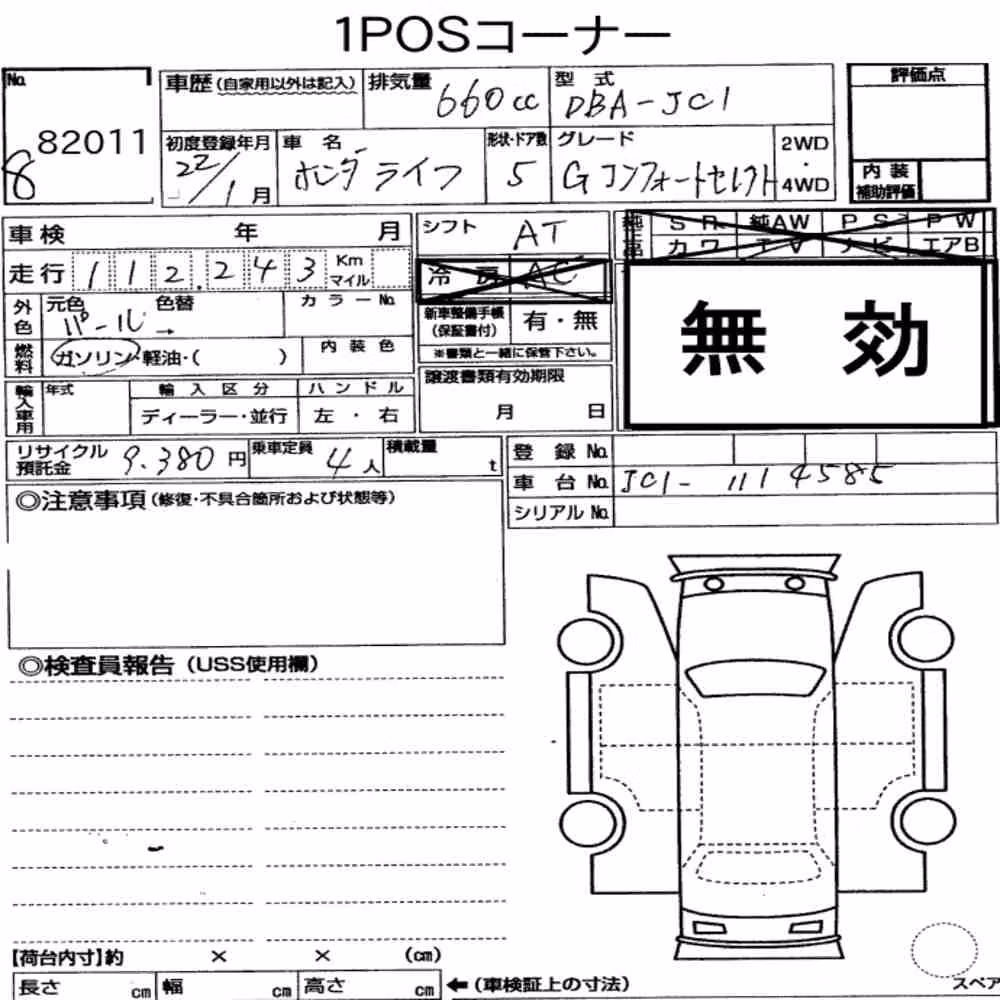 1POSコーナー
No. 82011
8
車歴(自家用以外は記入) 排気量 660cc 型式 DBA-JC1
評価点
初度登録年月 22/1月 車名 ホンダ ライフ 形状・ドア数 5 グレード G コンフォートセレクト 2WD・4WD
内装補助評価
車検 年 月
シフト AT
純正 SR 純AW PS PW
カワ TV ナビ エアB
走行 112.243 Km マイル
冷房 AC
無効
外色 元色 パール 色替 → カラーNo.
新車整備手帳(保証書付) 有・無
※書類と一緒に保管下さい。
燃料 ガソリン・軽油・( ) 内装色
譲渡書類有効期限
月 日
輸入車用 年式 輸入区分 ハンドル
ディーラー・並行 左・右
リサイクル預託金 9.380円 乗車定員 4人 積載量 t
登録No.
車台No. JC1- 1114585
シリアルNo.
◎注意事項(修復・不具合箇所および状態等)
◎検査員報告(USS使用欄)
【荷台内寸】約 × × (cm)
長さ cm 幅 cm 高さ cm ←(車検証上の寸法)
スペア